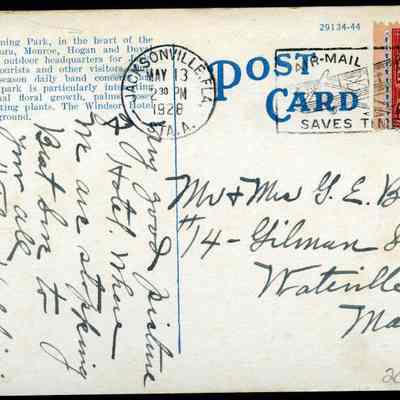 29134-44
ning Park, in the heart of the
ura, Monroe, Hogan and Duv
outdoor headquarters for
ourists and other visitors
eason daily band concer
park is particularly inter
nal floral growth, palms
ting plants. The Windsor Hotel
ground.
JACKSONVILLE, FLA.
MAY 13
2:30 PM
1928
STA. A.
AIR-MAIL
SAVES TIME
POST
CARD
Very good picture
of Hotel where
we are stopping
Best love to
you all
Mr & Mrs G. E. B
#14-Gilman S
Waterville
Ma